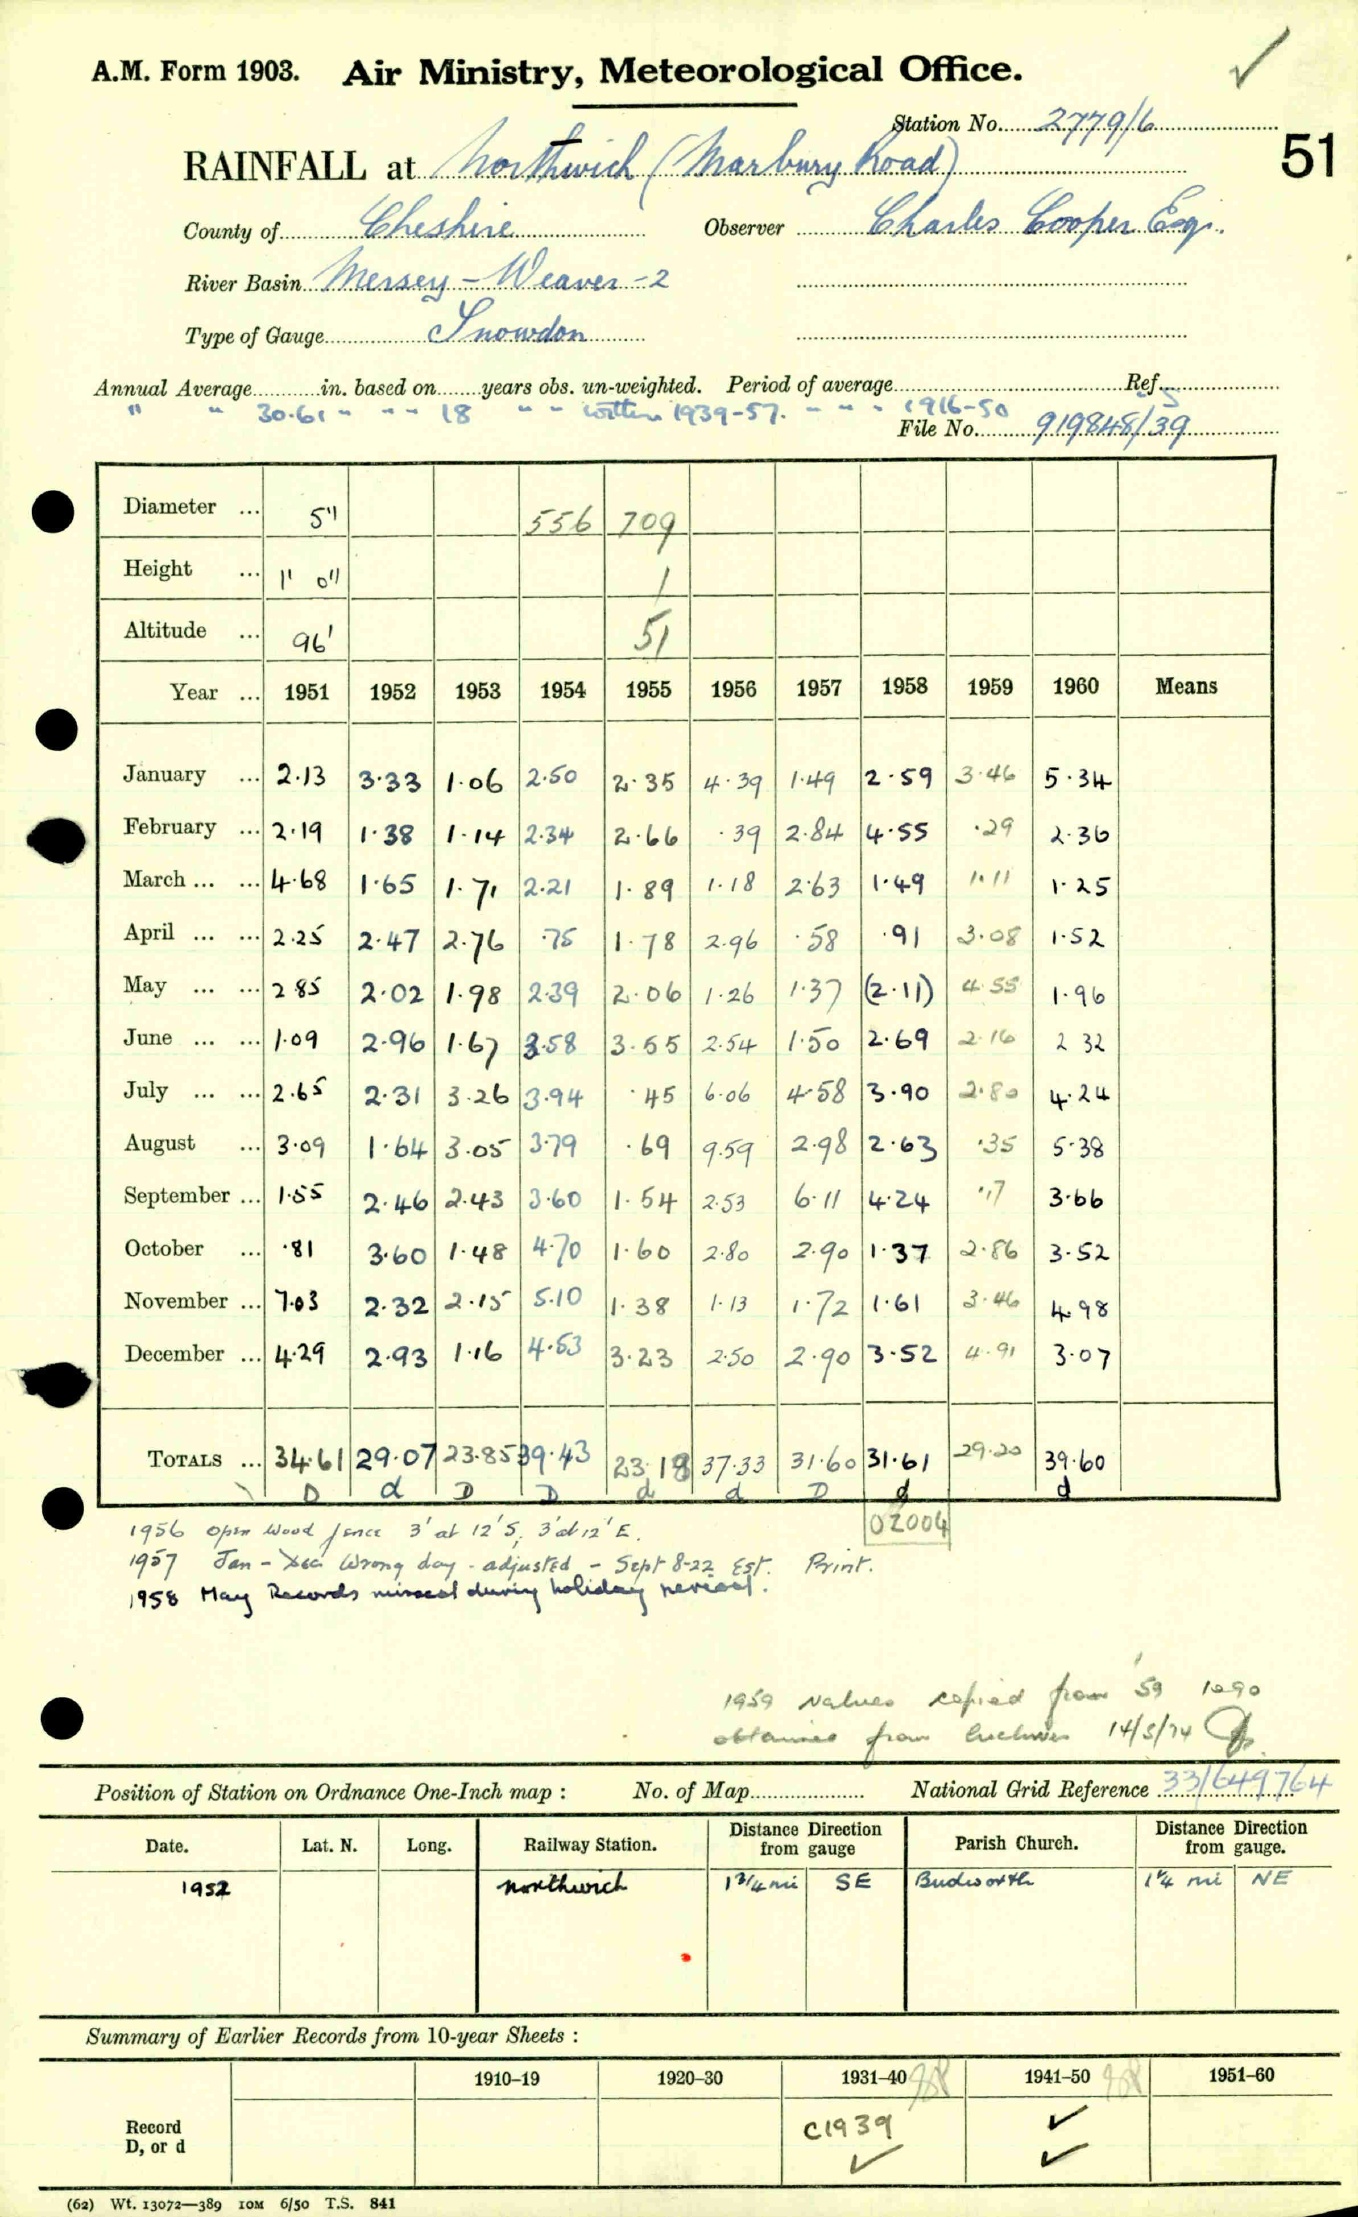 A.M. Form 1903. Air Ministry, Meteorological Office.
Station No. 2779/6
RAINFALL at Northwich (Marbury Road)
51
County of Cheshire Observer Charles Cooper Esq.
River Basin Mersey - Weaver - 2
Type of Gauge Snowdon
Annual Average in. based on years obs. un-weighted. Period of average Ref.
" " 30.61 " " " 18 " " within 1939-57. " " " 1916-50
File No. 919848/39
Diameter ... 5" 556 709
Height ... 1' 0" 1
Altitude ... 96' 51
Year ... 1951 1952 1953 1954 1955 1956 1957 1958 1959 1960 Means
January ... 2.13 3.33 1.06 2.50 2.35 4.39 1.49 2.59 3.46 5.34
February ... 2.19 1.38 1.14 2.34 2.66 .39 2.84 4.55 .29 2.36
March ... ... 4.68 1.65 1.71 2.21 1.89 1.18 2.63 1.49 1.11 1.25
April ... ... 2.25 2.47 2.76 .75 1.78 2.96 .58 .91 3.08 1.52
May ... ... 2 85 2.02 1.98 2.39 2.06 1.26 1.37 (2.11) 4.55 1.96
June ... ... 1.09 2.96 1.67 3.58 3.55 2.54 1.50 2.69 2.16 2 32
July ... ... 2.65 2.31 3.26 3.94 .45 6.06 4.58 3.90 2.80 4.24
August ... 3.09 1.64 3.05 3.79 .69 9.59 2.98 2.63 .35 5.38
September ... 1.55 2.46 2.43 3.60 1.54 2.53 6.11 4.24 .17 3.66
October ... .81 3.60 1.48 4.70 1.60 2.80 2.90 1.37 2.86 3.52
November ... 7.03 2.32 2.15 5.10 1.38 1.13 1.72 1.61 3.46 4.98
December ... 4.29 2.93 1.16 4.53 3.23 2.50 2.90 3.52 4.91 3.07
TOTALS ... 34.61 29.07 23.85 39.43 23.18 37.33 31.60 31.61 29.20 39.60
D d D D d d D d d
02004
1956 Open wood fence 3' at 12' S, 3' at 12' E.
1957 Jan - Dec Wrong day - adjusted - Sept 8-22 Est. Print.
1958 May Records missed during holiday period.
1959 values copied from '59
obtained from Archives 14/5/74
Position of Station on Ordnance One-Inch map : No. of Map National Grid Reference 33/649764
Date. Lat. N. Long. Railway Station. Distance from Direction gauge Parish Church. Distance from Direction gauge.
1952 Northwich 1 3/4 mi SE Budworth 1 1/4 mi NE
Summary of Earlier Records from 10-year Sheets :
1910–19 1920–30 1931–40 1941–50 1951–60
Record C1939
D, or d
(62) Wt. 13072—389 10M 6/50 T.S. 841